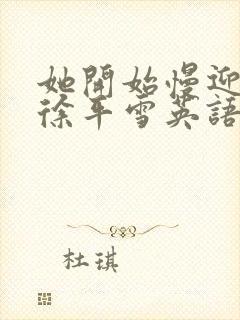 她開始慢迎
徐平雪英語
杜琪